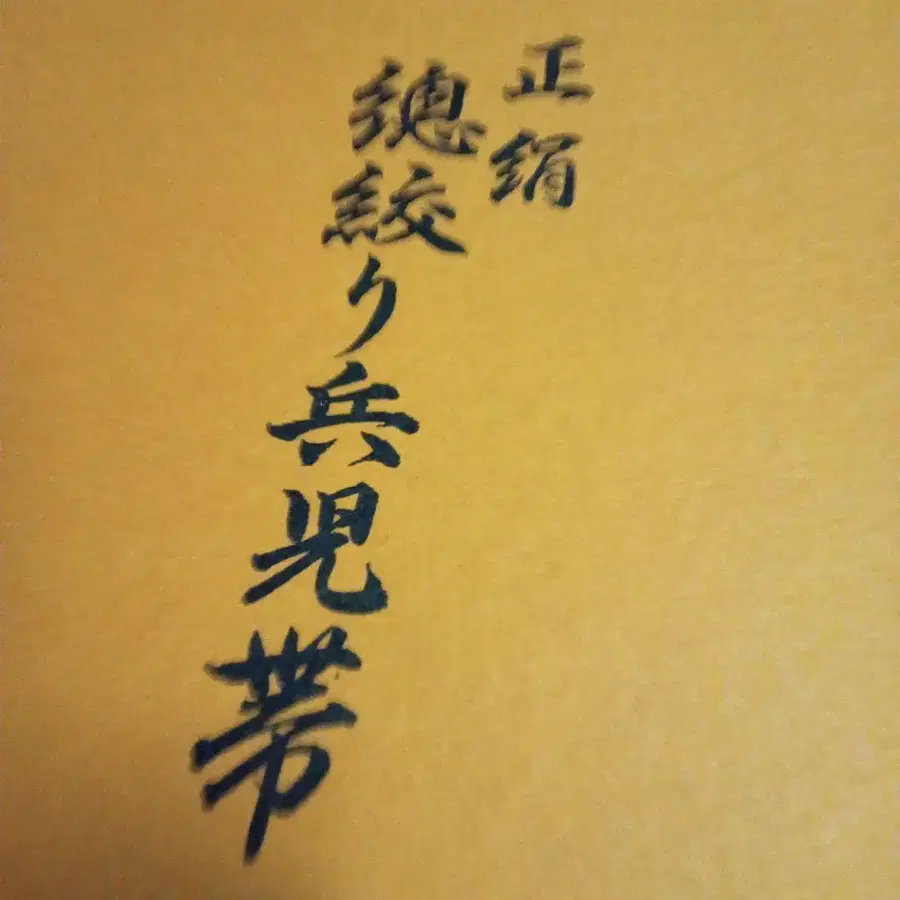 正絹
總絞り兵児帯